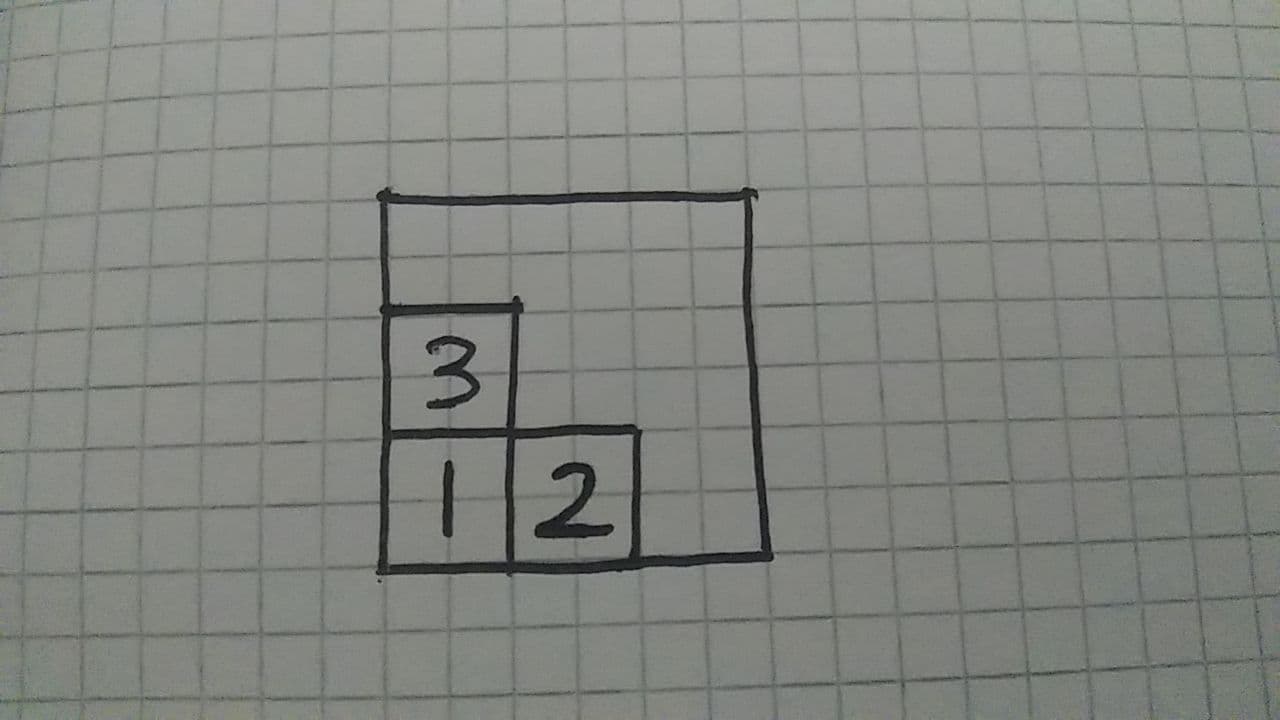 3
1 2